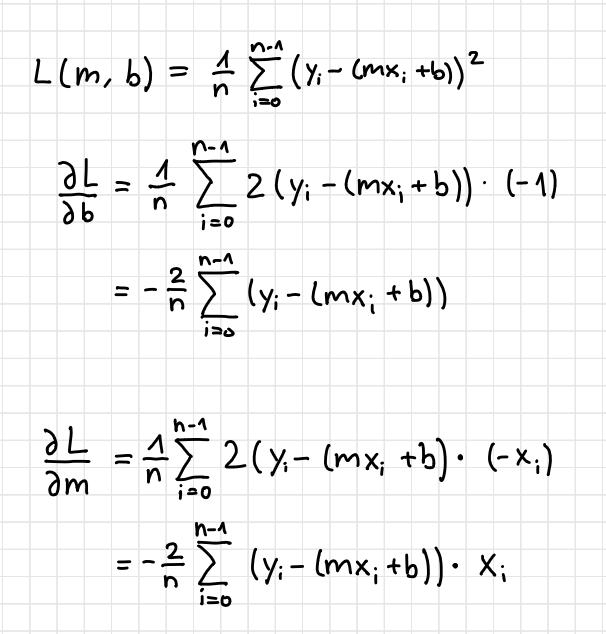 L(m, b) = 1/n ∑_{i=0}^{n-1} (y_i - (mx_i + b))^2
∂L/∂b = 1/n ∑_{i=0}^{n-1} 2 (y_i - (mx_i + b)) · (-1)
= - 2/n ∑_{i=0}^{n-1} (y_i - (mx_i + b))
∂L/∂m = 1/n ∑_{i=0}^{n-1} 2 (y_i - (mx_i + b) · (-x_i)
= - 2/n ∑_{i=0}^{n-1} (y_i - (mx_i + b)) · x_i